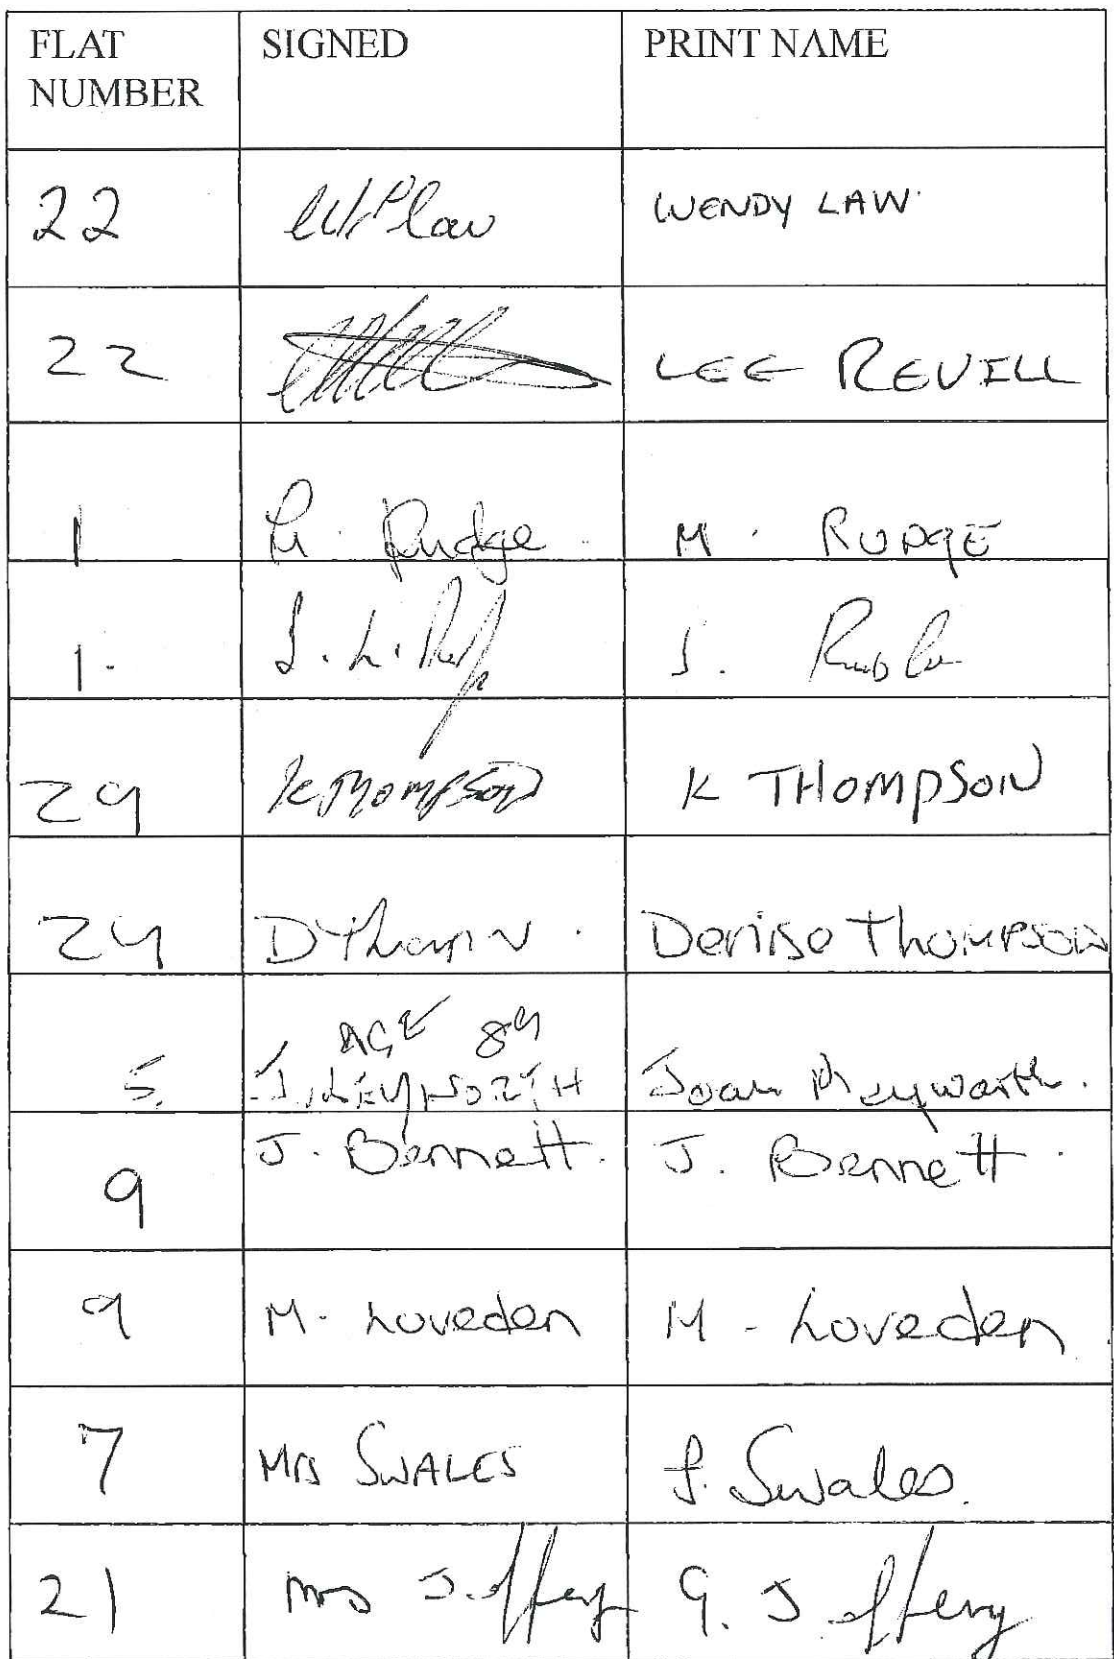 FLAT NUMBER SIGNED PRINT NAME
22 WP Law WENDY LAW
22 LEE REVILL
1 M. Rudge M. RUDGE
1. J. L. J.
29 K THOMPSON K THOMPSON
24 D Denise Thompson
AGE 89
5. J. Joan
9 J. Bennett. J. Bennett.
9 M. Loveden M. Loveden
7 MRS SWALES J. Swales.
21 Mrs Jeffery G. Jeffery